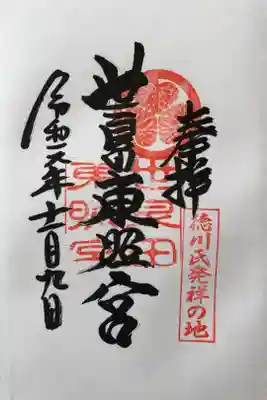 奉拝
徳川氏発祥の地
世良田東照宮
世良田
東照宮
令和元年十一月九日